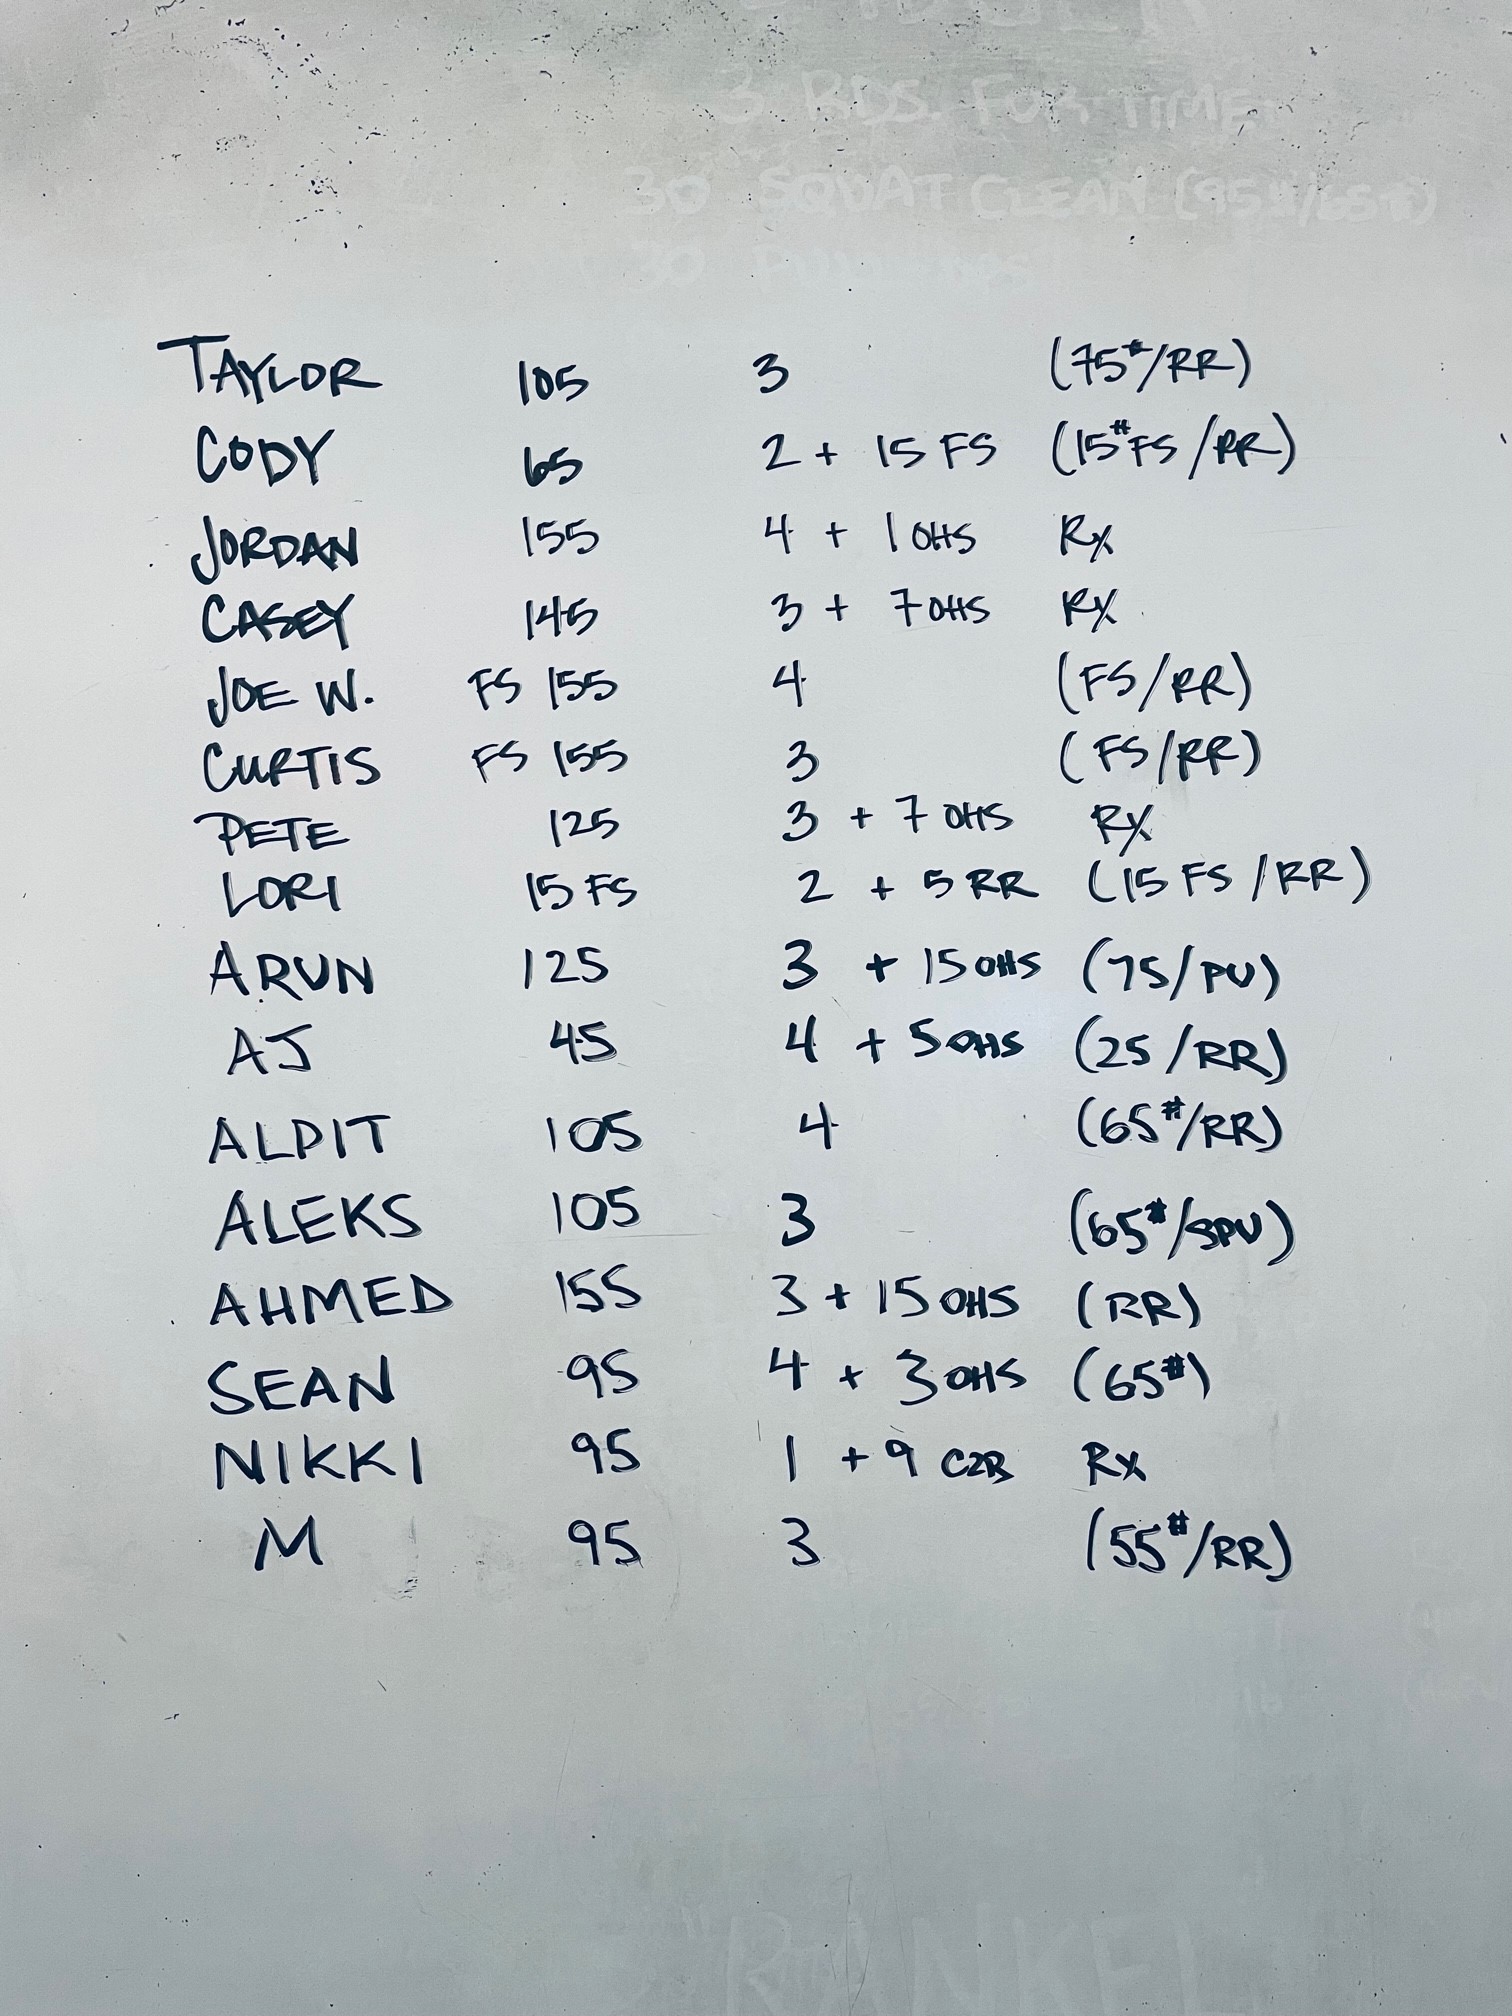 3 RDS. FOR TIME
30 SQUAT CLEAN (95#/65#)
30
TAYLOR 105 3 (75#/RR)
CODY 65 2 + 15 FS (15#FS/RR)
JORDAN 155 4 + 1 OHS Rx
CASEY 145 3 + 7 OHS Rx
JOE W. FS 155 4 (FS/RR)
CURTIS FS 155 3 (FS/RR)
PETE 125 3 + 7 OHS Rx
LORI 15 FS 2 + 5 RR (15 FS/RR)
ARUN 125 3 + 15 OHS (75/PU)
AJ 45 4 + 5 OHS (25/RR)
ALPIT 105 4 (65#/RR)
ALEKS 105 3 (65#/SPU)
AHMED 155 3 + 15 OHS (RR)
SEAN 95 4 + 3 OHS (65#)
NIKKI 95 1 + 9 C2B Rx
M 95 3 (55#/RR)